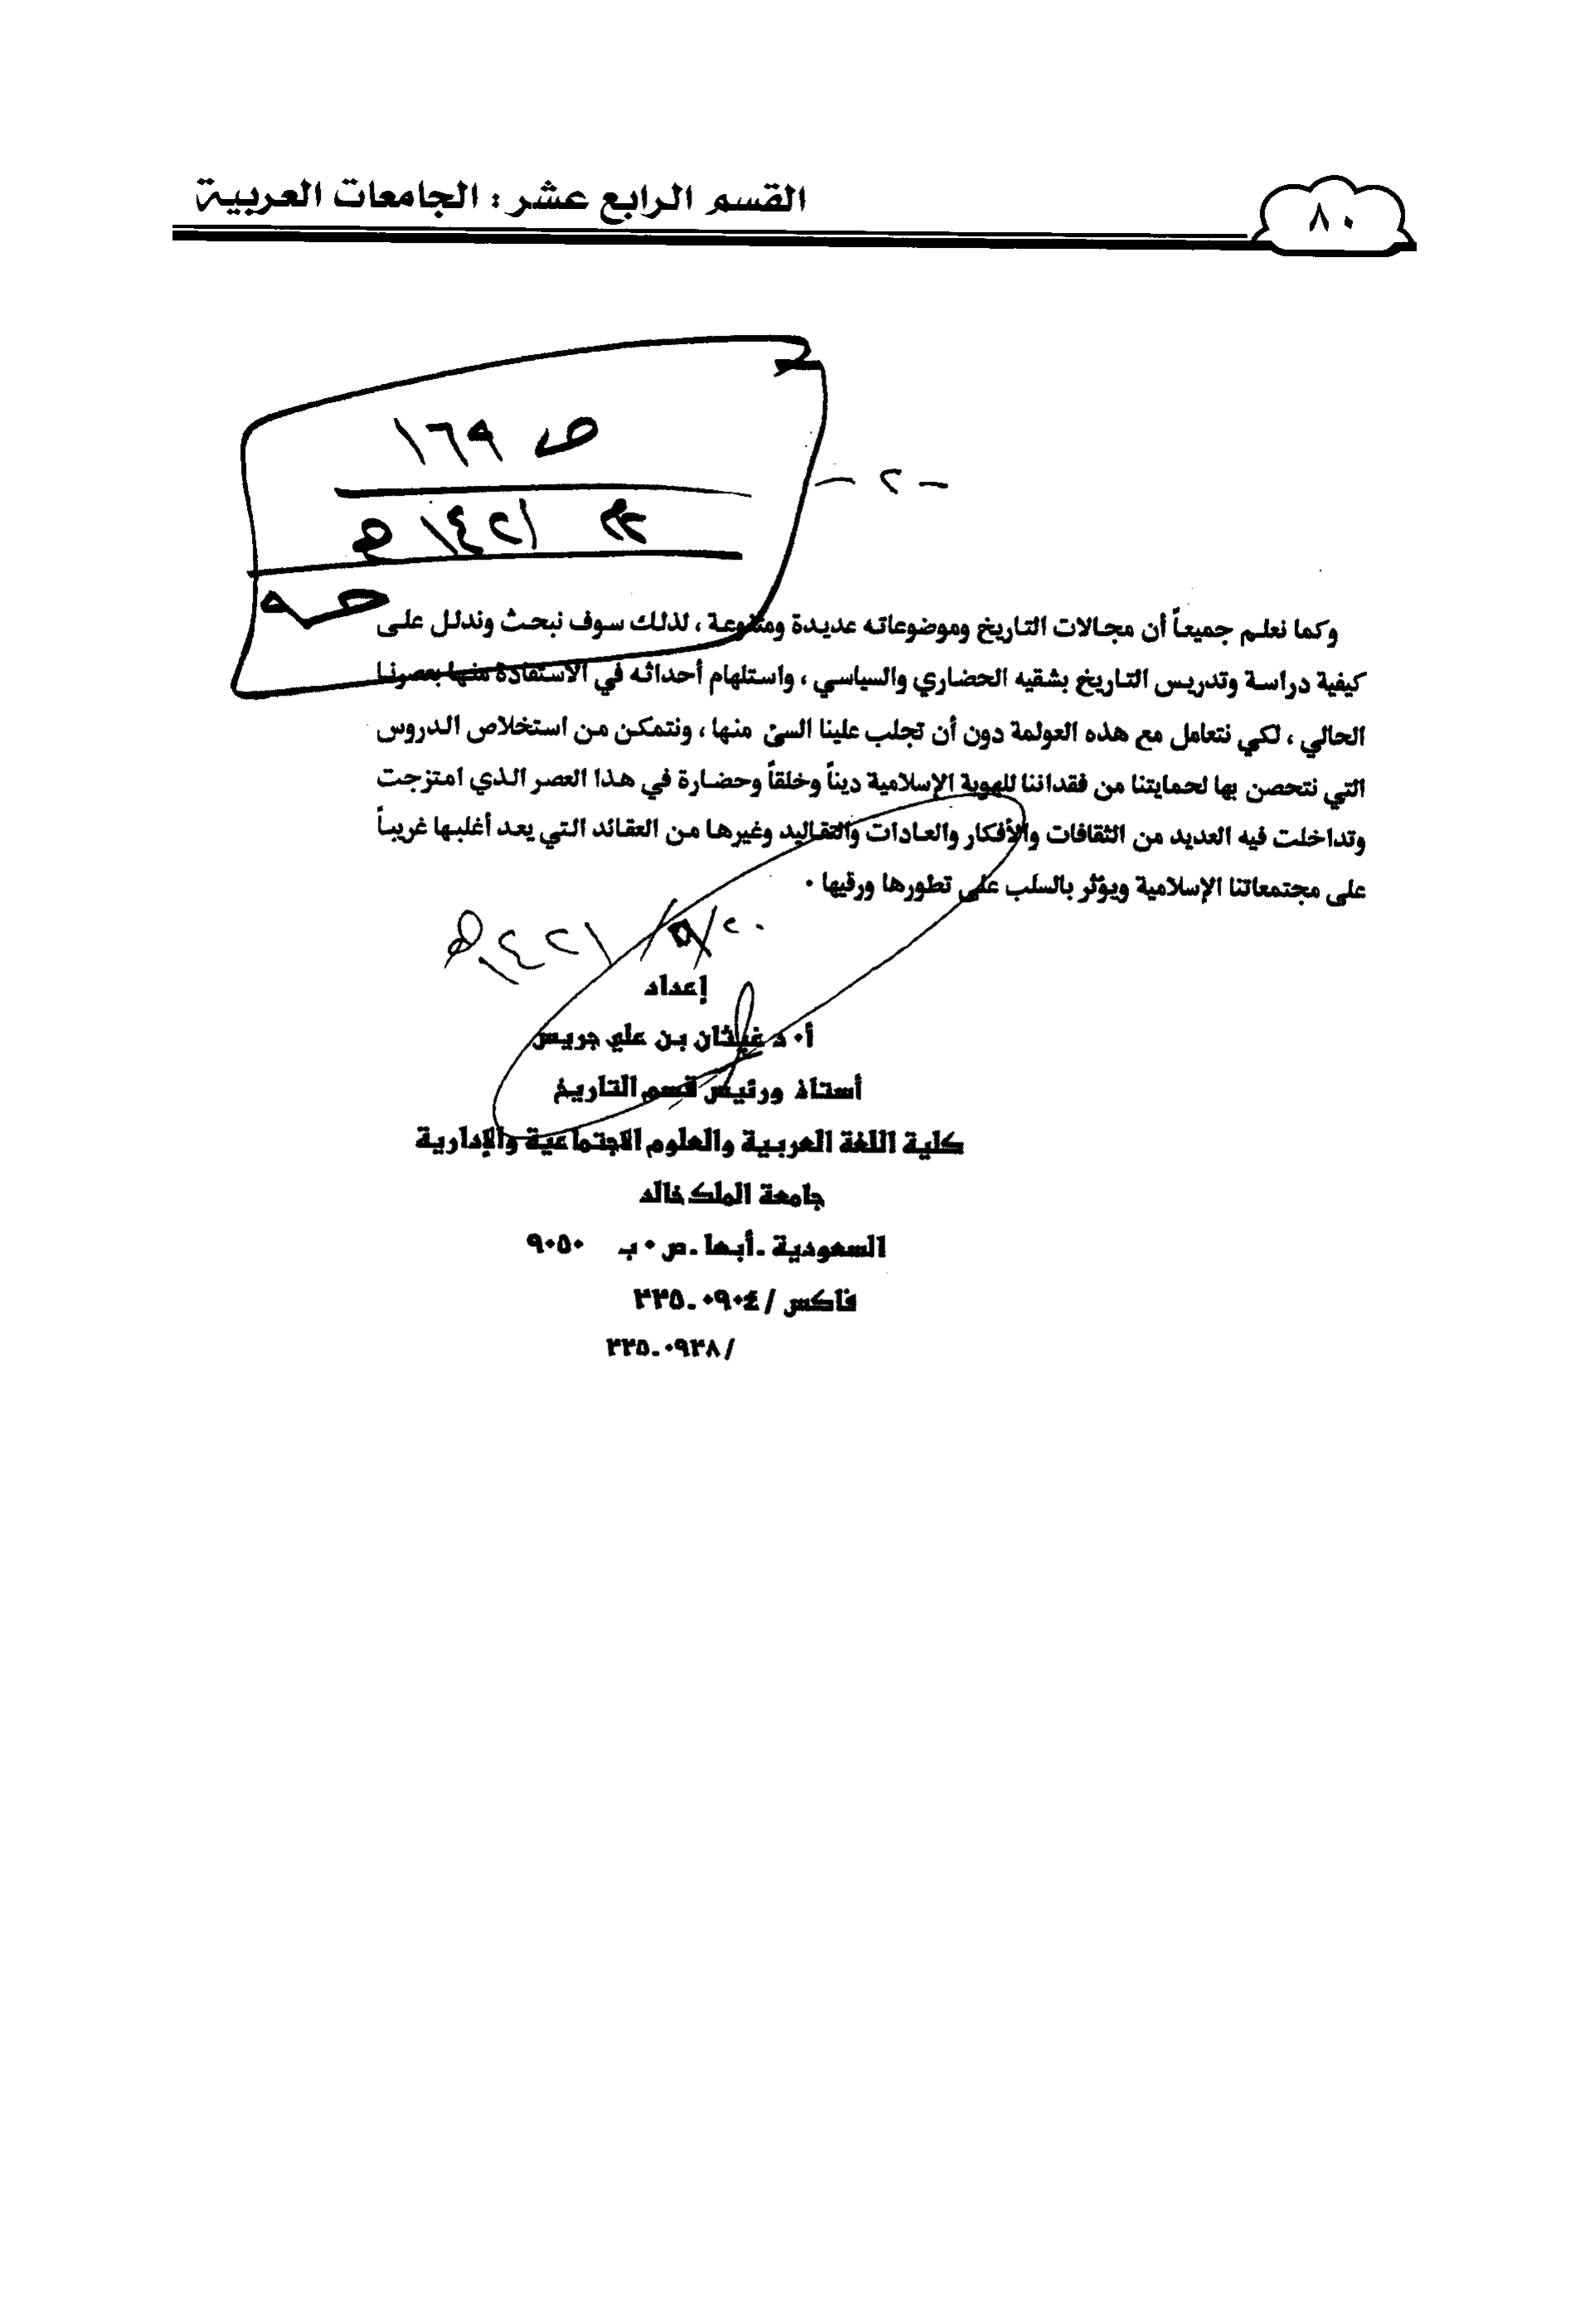 القسم الرابع عشر : الجامعات العربية
٨٠
ص ١٦٩
١٤٢١ هـ
- ٢ -
وكما نعلم جميعاً أن مجالات التاريخ وموضوعاته عديدة ومتنوعة ، لذلك سوف نبحث وندلل على
كيفية دراسة وتدريس التاريخ بشقيه الحضاري والسياسي ، واستلهام أحداثه في الاستفادة منها بعصرنا
الحالي ، لكي نتعامل مع هذه العولمة دون أن تجلب علينا السئ منها ، ونتمكن من استخلاص الدروس
التي نتحصن بها لحمايتنا من فقداننا للهوية الإسلامية ديناً وخلقاً وحضارة في هذا العصر الذي امتزجت
وتداخلت فيه العديد من الثقافات والأفكار والعادات والتقاليد وغيرها من العقائد التي يعد أغلبها غريباً
على مجتمعاتنا الإسلامية ويؤثر بالسلب على تطورها ورقيها ٠
٢٠/٥/١٤٢١هـ
إعداد
أ٠د غيثان بن علي جريس
أستاذ ورئيس قسم التاريخ
كلية اللغة العربية والعلوم الاجتماعية والإدارية
جامعة الملك خالد
السعودية ـ أبها ـ ص ٠ ب ٩٠٥٠
فاكس / ٠٩٠٤ـ٢٢٥
/ ٠٩٢٨ـ٢٢٥